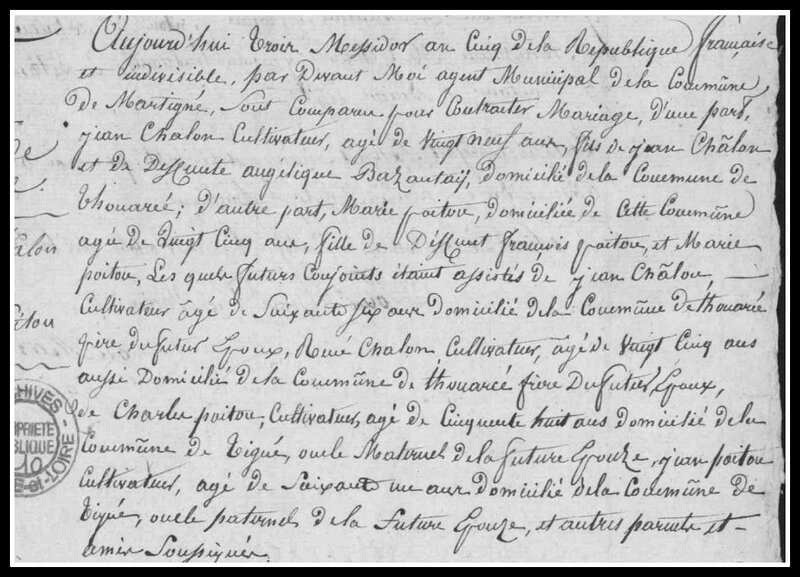 Aujourd'hui trois Messidor an Cinq de la Republique française
et indivisible, par Devant Moi agent Municipal de la Commūne
de Martigné, sont Comparu pour Contracter Mariage, d'une part,
jean Chalon Cultivateur, agé de vingt neuf ans, fils de jean Châlon
et de Deffunte angélique Bazantaÿ, domicilié de la Commune de
thouarcé; d'autre part, Marie poitou, domiciliée de Cette Commūne
agée de Vingt Cinq ans, fille de Deffunt françois poitou, et Marie
poitou, Les quels futurs Conjoints étant assistés de jean Châlon,
Cultivateur âgé de Soixante six ans domicilié de la Commūne de thouarcé
père du futur Epoux, René Chalon Cultivateur, âgé de Vingt Cinq ans
aussi Domicilié de la Commūne de thouarcé frère Du futur Epoux,
de Charles poitou, Cultivateur, agé de Cinquente huit ans domicilié de la
Commūne de Tigné, oncle Maternel de la future Epouze, jean poitou
Cultivateur, agé de Soixante un ans domicilié de la Commūne de
Tigné, oncle paternel de la future Epouze, et autres parents et
amis Soussignés.
alon
itou
CHIVES
PROPRIETE
PUBLIQUE
10
E-et-LOIRE